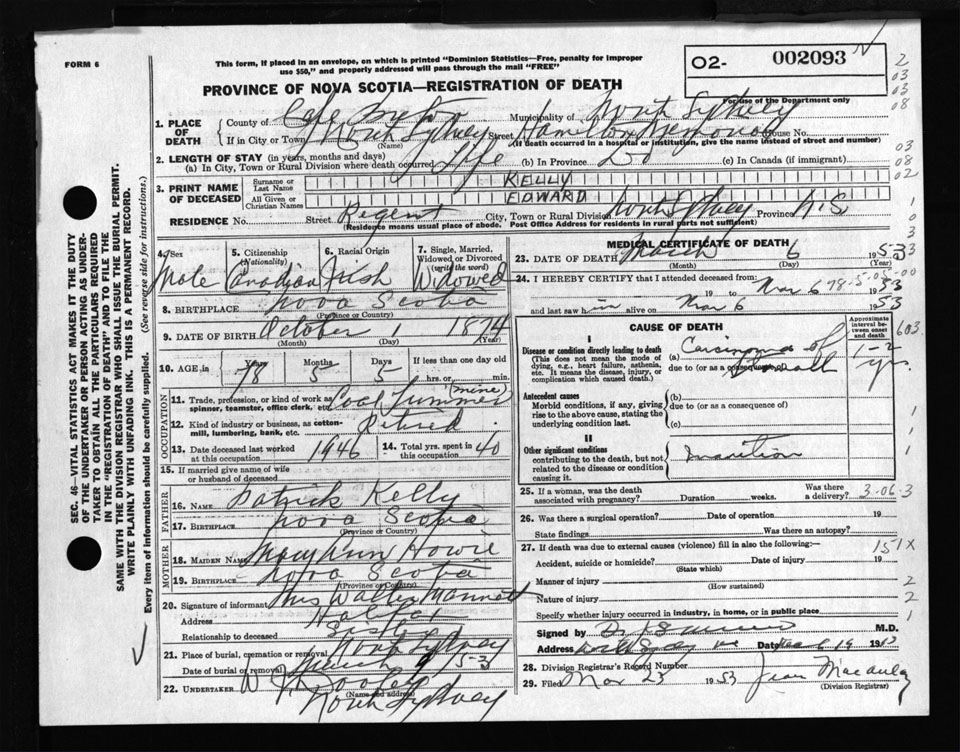 FORM 6
This form, if placed in an envelope, on which is printed "Dominion Statistics—Free, penalty for improper
use $50," and properly addressed will pass through the mail "FREE"
O2- 002093
For use of the Department only
PROVINCE OF NOVA SCOTIA—REGISTRATION OF DEATH
1. PLACE OF DEATH
County of Cape Breton Municipality of North Sydney
If in City or Town North Sydney (Name) Street Hamilton Memorial House No.
(If death occurred in a hospital or institution, give the name instead of street and number)
2. LENGTH OF STAY (in years, months and days)
(a) In City, Town or Rural Division where death occurred Life (b) In Province Do (c) In Canada (if immigrant)
3. PRINT NAME OF DECEASED
Surname or Last Name KELLY
All Given or Christian Names EDWARD
RESIDENCE No. Street Regent City, Town or Rural Division North Sydney Province N.S.
(Residence means usual place of abode. Post Office Address for residents in rural parts not sufficient)
4. Sex Male
5. Citizenship (Nationality) Canadian
6. Racial Origin Irish
7. Single, Married, Widowed or Divorced (write the word) Widowed
8. BIRTHPLACE Nova Scotia
(Province or Country)
9. DATE OF BIRTH October 1 1874
(Month) (Day) (Year)
10. AGE in Years 78 Months 5 Days 5 If less than one day old hrs. or min.
OCCUPATION
11. Trade, profession, or kind of work as spinner, teamster, office clerk, etc. Coal (mine)
12. Kind of industry or business, as cotton-mill, lumbering, bank, etc. Retired
13. Date deceased last worked at this occupation 1946
14. Total yrs. spent in this occupation 40
15. If married give name of wife or husband of deceased
FATHER
16. NAME Patrick Kelly
17. BIRTHPLACE Nova Scotia
(Province or Country)
MOTHER
18. MAIDEN NAME Mary Ann Howie
19. BIRTHPLACE Nova Scotia
(Province or Country)
20. Signature of informant Mrs Walter
Address Halifax
Relationship to deceased Sister
21. Place of burial, cremation or removal North Sydney
Date of burial or removal March 9 53
22. UNDERTAKER W Dooley
(Name and address)
North Sydney
MEDICAL CERTIFICATE OF DEATH
23. DATE OF DEATH March 6 1953
(Month) (Day)
24. I HEREBY CERTIFY that I attended deceased from:
19 to Mar 6 1953
78-5-05-00
and last saw him alive on Mar 6 1953
CAUSE OF DEATH
Approximate interval between onset and death
I
Disease or condition directly leading to death
(This does not mean the mode of dying, e.g., heart failure, asthenia, etc. It means the disease, injury, or complication which caused death.)
(a) Carcinoma of
due to (or as a consequence of)
1-2 yrs
Antecedent causes
Morbid conditions, if any, giving rise to the above cause, stating the underlying condition last.
(b)
due to (or as a consequence of)
(c)
II
Other significant conditions
contributing to the death, but not related to the disease or condition causing it.
Inanition
25. If a woman, was the death associated with pregnancy? Duration weeks. Was there a delivery?
3-06-3
26. Was there a surgical operation? Date of operation 19
State findings Was there an autopsy?
27. If death was due to external causes (violence) fill in also the following:—
151X
Accident, suicide or homicide? Date of injury 19
(State which)
Manner of injury
(How sustained)
Nature of injury
Specify whether injury occurred in industry, in home, or in public place
Signed by M.D.
Address Date
28. Division Registrar's Record Number
29. Filed Mar 23 1953 Jean Macaulay
(Division Registrar)
SEC. 46—VITAL STATISTICS ACT MAKES IT THE DUTY
OF THE UNDERTAKER OR PERSON ACTING AS UNDER-
TAKER TO OBTAIN ALL THE PARTICULARS REQUIRED
IN THE "REGISTRATION OF DEATH" AND TO FILE THE
SAME WITH THE DIVISION REGISTRAR WHO SHALL ISSUE THE BURIAL PERMIT.
WRITE PLAINLY WITH UNFADING INK. THIS IS A PERMANENT RECORD.
Every item of information should be carefully supplied. (See reverse side for instructions.)
2
03
03
08
03
08
02
1
0
3
0
3
603
1
1
1
2
2
1